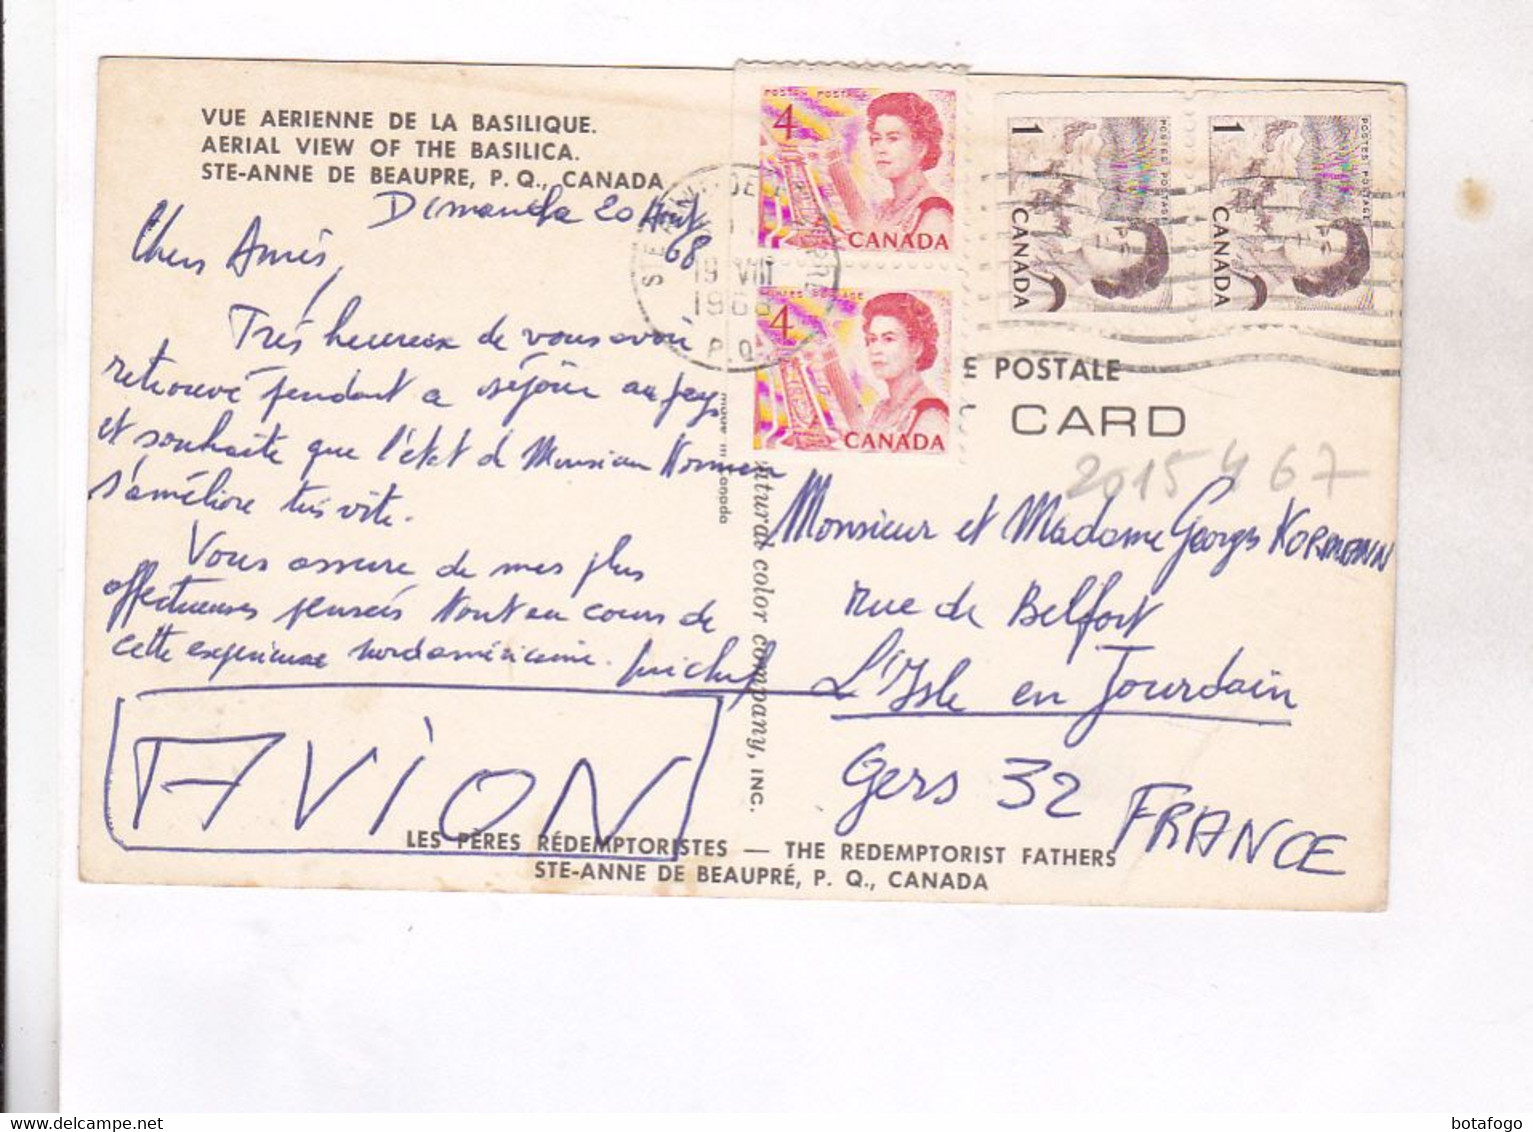 VUE AERIENNE DE LA BASILIQUE.
AERIAL VIEW OF THE BASILICA.
STE-ANNE DE BEAUPRE, P. Q., CANADA
Dimanche 20 Août
68
Chers Amis,
Très heureux de vous avoir
retrouvé pendant ce séjour au pays
et souhaite que l'état de Monsieur Kormann
s'améliore très vite.
Vous assure de mes plus
affectueuses pensées tout au cours de
cette expérience nordaméricaine.
AVION
LES PÈRES RÉDEMPTORISTES — THE REDEMPTORIST FATHERS
STE-ANNE DE BEAUPRÉ, P. Q., CANADA
made in Canada
natural color company, INC.
POSTES POSTAGE
4
CANADA
POSTES POSTAGE
4
CANADA
POSTES POSTAGE
1
CANADA
POSTES POSTAGE
1
CANADA
STE ANNE DE BEAUPRE
19 VIII
1968
P.Q.
E POSTALE
CARD
2015467
Monsieur et Madame Georges KORMANN
rue de Belfort
L'Isle en Jourdain
Gers 32
FRANCE
botafogo